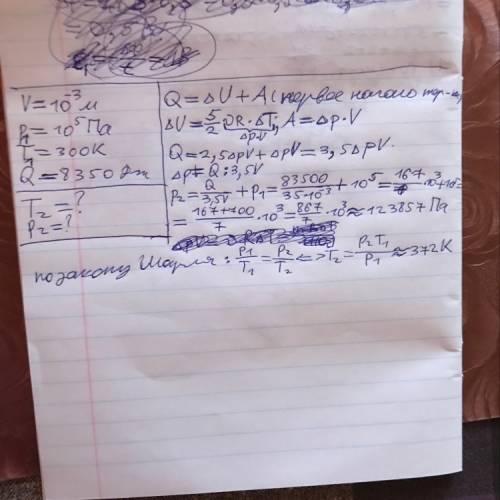 V=10⁻³ м
p₁=10⁵ Па
T₁=300K
Q=8350 Дж
T₂=?
p₂=?
Q=ΔU+A (первое начало тер-ки)
ΔU=5/2 υR·ΔT; A=Δp·V
Δp·V
Q=2,5ΔpV+ΔpV=3,5ΔpV.
Δp=Q:3,5V
p₂=Q/3,5V+p₁=83500/35·10³+10⁵=167/7·10³+10⁵=
=167+700/7·10³=867/7·10³≈123857 Па
по закону Шарля: p₁/T₁=p₂/T₂<=>T₂=p₂T₁/p₁≈372K